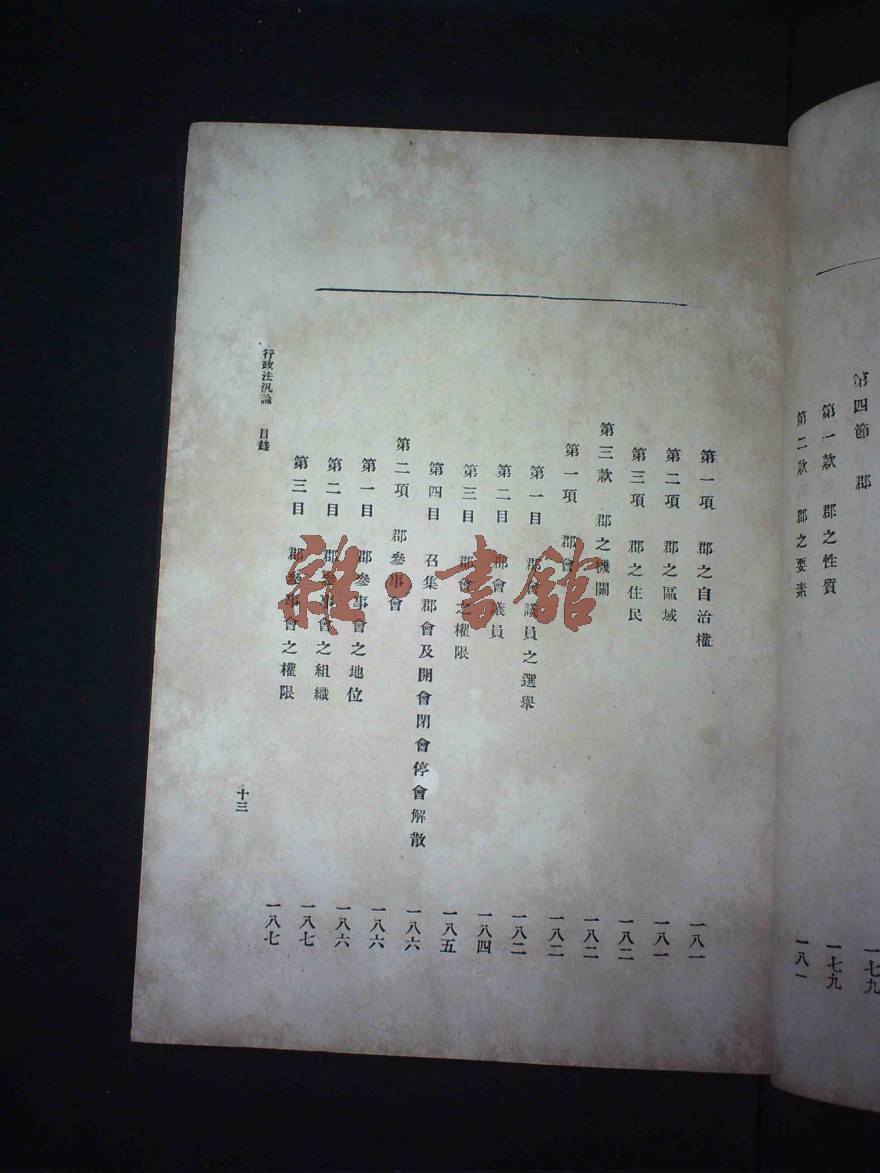 第四節 郡 一七九
第一款 郡之性質 一七九
第二款 郡之要素 一八一
第一項 郡之自治權 一八一
第二項 郡之區域 一八一
第三項 郡之住民 一八二
第三款 郡之機關 一八二
第一項 郡會 一八二
第一目 郡會議員之選舉 一八二
第二目 郡會議員 一八四
第三目 郡會之權限 一八五
第四目 召集郡會及開會閉會停會解散 一八六
第二項 郡參事會 一八六
第一目 郡參事會之地位 一八六
第二目 郡參事會之組織 一八七
第三目 郡參事會之權限 一八七
行政法汎論 目錄 十三
雜·書館